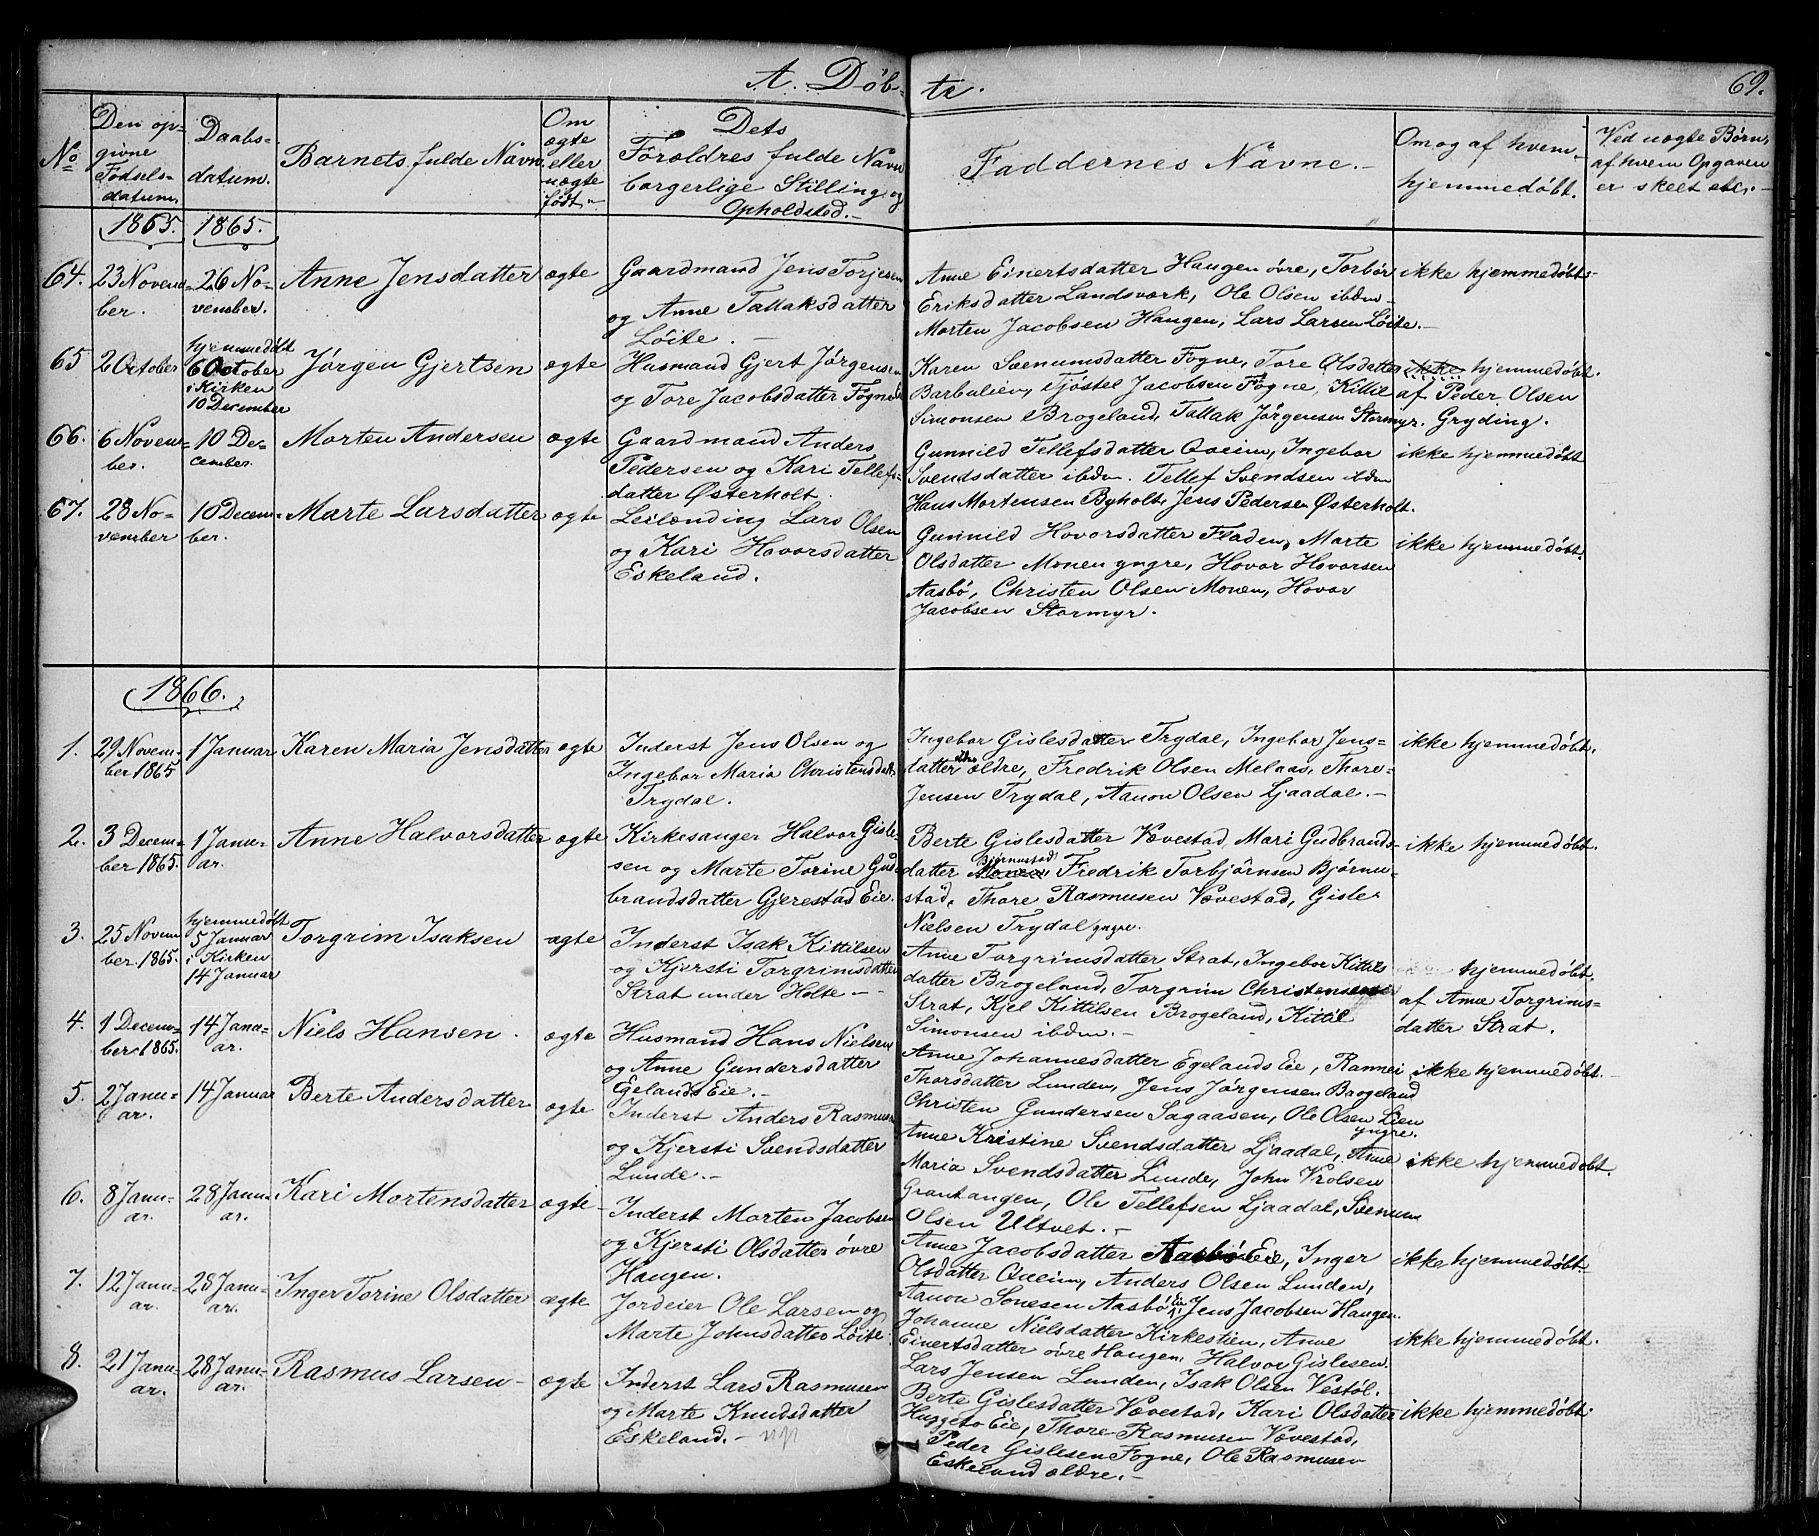 A. Døb-
te.
69.
No
Den op-
givne
Fødsels-
datum.
Daabs-
datum.
Barnets fulde Navn
Om
ægte
eller
uægte
født.
Dets
Forældres fulde Navn
borgerlige Stilling og
Opholdsted.
Faddernes Navne.
Om og af hvem
hjemmedøbt.
Ved uægte Børn,
af hvem Opgaven
er skeet etc.
1865.
1865.
64.
23 Novem-
ber.
26 No-
vember.
Anne Jensdatter
ægte
Gaardmand Jens Torjesen
og Anne Tallaksdatter
Løite.
Anne Einertsdatter Haugen øvre, Torbør
Eriksdatter Landsværk, Ole Olsen ibdm
Morten Jacobsen Haugen, Lars Larsen Løite.
ikke hjemmedøbt
65
2 October
hjemmedøbt
6 October
i Kirken
10 December
Jørgen Gjertsen
ægte
Husmand Gjert Jørgensen
og Tore Jacobsdatter Fogne
Karen Svenumsdatter Fogne, Tore Olsdatter
Barbulien, Tjøstel Jacobsen Fogne, Kittil
Simonsen Brogeland, Tallak Jørgensen Stormyr.
ikke hjemmedøbt.
af Peder Olsen
Gryding.
66.
6 Novem-
ber.
10 De-
cember.
Morten Andersen
ægte
Gaardmand Anders
Pedersen og Kari Tellefs-
datter Østerholt.
Gunnild Tellefsdatter Qveim, Ingebor
Svendsdatter ibdm. Tellef Svendsen ibdm
Hans Mortensen Byholt, Jens Pedersen Østerholt.
ikke hjemmedøbt
67.
28 No-
vember
10 Decem-
ber.
Marte Larsdatter
ægte
Leilænding Lars Olsen
og Kari Hovorsdatter
Eskeland.
Gunnild Hovorsdatter Fladen, Marte
Olsdatter Monen yngre, Hovor Hovorsen
Aasbø, Christen Olsen Monen, Hovor
Jacobsen Stormyr.
ikke hjemmedøbt.
1866.
1.
29 Novem-
ber 1865
1 Januar
Karen Maria Jensdatter
ægte
Inderst Jens Olsen og
Ingebor Maria Christensdatt.
Trydal.
Ingebor Gislesdatter Trydal, Ingebor Jens-
datter ældre, Fredrik Olsen Melaas, Thore
Jensen Trydal, Aanon Olsen Ljaadal.
ikke hjemmedøbt.
2.
3 Decem-
ber 1865.
1 Janu-
ar.
Anne Halvorsdatter
ægte
Kirkesanger Halvor Gisle-
sen og Marte Torine Gud-
brandsdatter Gjerestad Eie.
Berte Gislesdatter Vævestad, Mari Gudbrands-
datter Monen Bjørnustad Fredrik Torbjørnsen Bjørnu-
stad, Thore Rasmusen Vævestad, Gisle
Nielsen Trydal yngre.
ikke hjemmedøbt.
3.
25 Novem
ber 1865.
hjemmedøbt
5 Januar
i Kirken
14 Januar
Torgrim Isaksen
ægte
Inderst Isak Kittilsen
og Kjersti Torgrimsdatter
Strat under Holte
Anne Torgrimsdatter Strat, Ingebor Kittils
datter Brogeland, Torgrim Christensen
Strat, Kjel Kittilsen Brogeland, Kittil
Simonsen ibdm.
hjemmedøbt.
af Anne Torgrims-
datter Strat.
4.
1 Decem-
ber 1865.
14 Janu-
ar.
Niels Hansen.
ægte
Husmand Hans Nielsen
og Anne Gundersdatter
Egelands Eie.
Anne Johannesdatter Egelands Eie, Rannei
Thorsdatter Lunden, Jens Jørgensen Brogeland
Christen Gundersen Sagaasen, Ole Olsen Lien
yngre.
ikke hjemmedøbt.
5.
2 Janu-
ar.
14 Januar
Berte Andersdatter
ægte
Inderst Anders Rasmusen
og Kjersti Svendsdatter
Lunde.
Anne Kristine Svendsdatter Ljaadal, Anne
Maria Svendsdatter Lunde, John Vrolsen
Grantangen, Ole Tellefsen Ljaadal, Svenum
Olsen Ultvet.
ikke hjemmedøbt.
6.
8 Janu-
ar.
28 Janu-
ar.
Kari Mortensdatter
ægte
Inderst Morten Jacobsen
og Kjersti Olsdatter øvre
Haugen.
Anne Jacobsdatter Aasbø Eie, Inger
Olsdatter Qveim, Anders Olsen Lunden,
Aanon Sonesen Aasbø Eie, Jens Jacobsen Haugen.
ikke hjemmedøbt
7.
12 Janu-
ar.
28 Janu-
ar.
Inger Torine Olsdatter
ægte
Jordeier Ole Larsen og
Marte Johnsdatter Løite
Johanne Nielsdatter Kirkestien, Anne
Einertsdatter øvre Haugen, Halvor Gislesen
Lars Jensen Lunden, Isak Olsen Vestøl.
ikke hjemmedøbt.
8.
21 Janu-
ar.
28 Janu-
ar.
Rasmus Larsen
ægte
Inderst Lars Rasmusen
og Marte Knudsdatter
Eskeland.
Berte Gislesdatter Vævestad, Kari Olsdatter
Huggeto Eie, Thore Rasmusen Vævestad,
Peder Gislesen Fogne, Ole Rasmusen
Eskeland ældre.
ikke hjemmedøbt.